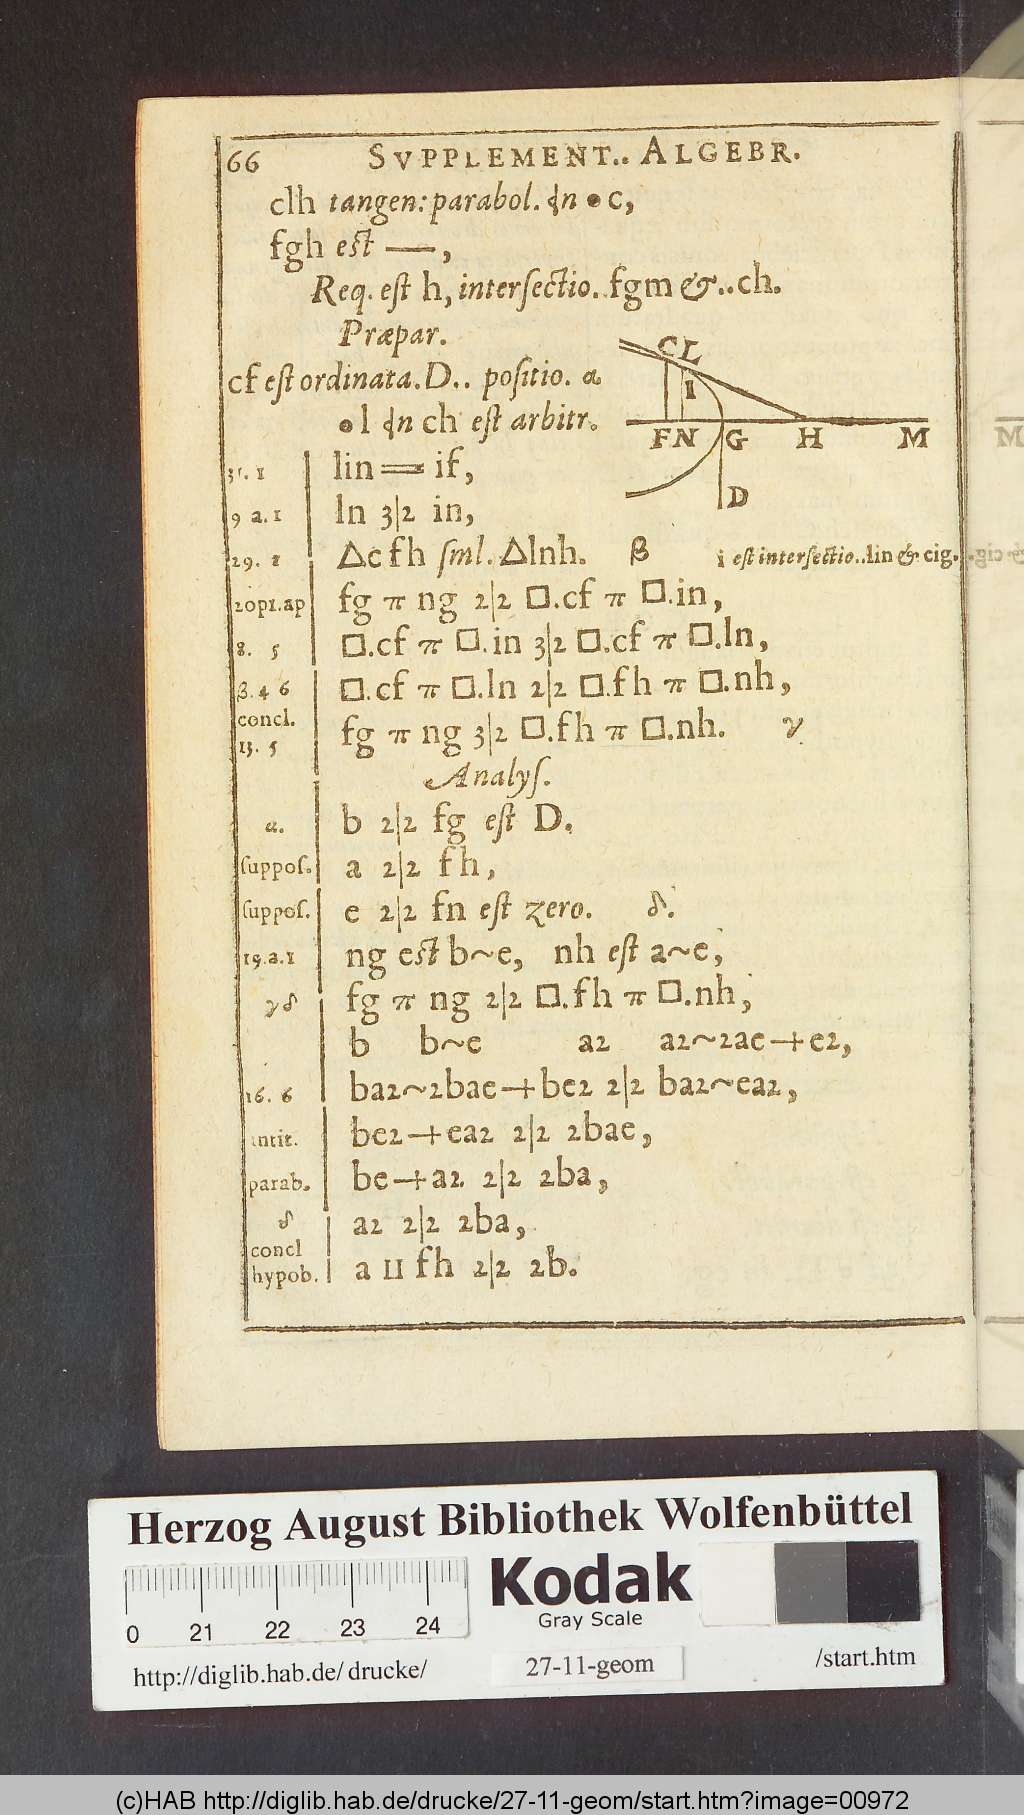 66 SVPPLEMENT.. ALGEBR.
clh tangen: parabol. ꞟn • c,
fgh est —,
Req. est h, intersectio. fgm &.. ch.
Præpar.
cf est ordinata. D.. positio. α
• l ꞟn ch est arbitr.
C L
I
F N G H M
D
31. 1 lin ═ if,
9 a. 1 ln 3|2 in,
29. 1 △cfh sml. △lnh. β
i est intersectio.. lin & cig.
20p1.ap fg π ng 2|2 □.cf π □.in,
8. 5 □.cf π □.in 3|2 □.cf π □.ln,
β. 4 6 □.cf π □.ln 2|2 □.fh π □.nh,
concl.
13. 5 fg π ng 3|2 □.fh π □.nh. γ
Analys.
α. b 2|2 fg est D.
suppos. a 2|2 fh,
suppos. e 2|2 fn est zero. δ.
19.a.1 ng est b~e, nh est a~e,
γδ fg π ng 2|2 □.fh π □.nh,
b b~e a2 a2~2ae+e2,
16. 6 ba2~2bae+be2 2|2 ba2~ea2,
antit. be2+ea2 2|2 2bae,
parab. be+a2 2|2 2ba,
δ a2 2|2 2ba,
concl
hypob. a II fh 2|2 2b.
Herzog August Bibliothek Wolfenbüttel
Kodak
Gray Scale
0 21 22 23 24
http://diglib.hab.de/drucke/ 27-11-geom /start.htm
(c)HAB http://diglib.hab.de/drucke/27-11-geom/start.htm?image=00972